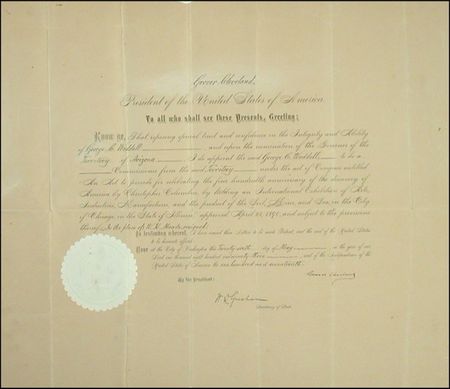 Grover Cleveland,
President of the United States of America
To all who shall see these Presents, Greeting:
Know ye, That reposing special trust and confidence in the Integrity and Ability
of George C. Waddell, and upon the nomination of the Governor of the
Territory of Arizona, I do appoint the said George C. Waddell, to be a
Commissioner from the said Territory under the act of Congress entitled
An Act to provide for celebrating the four hundredth anniversary of the discovery of
America by Christopher Columbus by holding an International Exhibition of Arts,
Industries, Manufactures and the product of the Soil, Mine, and Sea, in the City
of Chicago, in the State of Illinois, approved April 25, 1890, and subject to the provisions
thereof, in the place of W. K. resigned.
In testimony whereof, I have caused these Letters to be made Patent, and the seal of the United States
to be hereunto affixed.
Done at the City of Washington this twenty sixth day of May, in the year of our
Lord one thousand eight hundred and ninety three, and of the Independence of the
United States of America the one hundred and seventeenth.
Grover Cleveland
By the President:
W. Q. Gresham
Secretary of State.